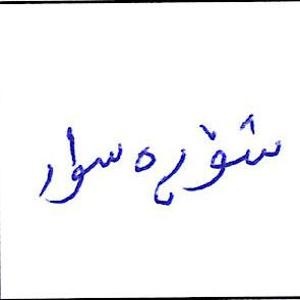 شۆڕە سوار